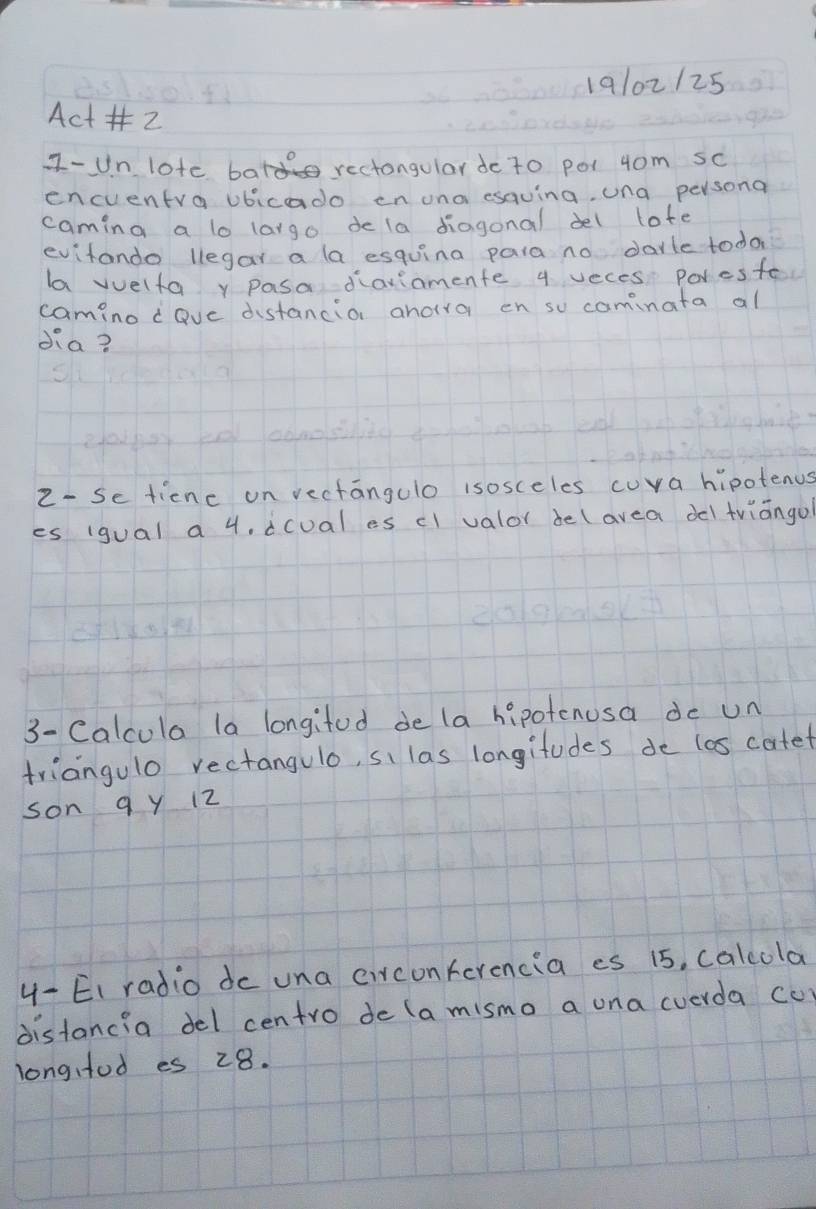 19/02/25
Act # 2
1- Un lote rectangular de 70 por 40m se
encuentra ubicado en una esquina. una persona
camina a lo largo de la diagonal del lote
evitando llegar a la esquina para no darle toda
la vuelta y pasa diariamente 4 veces por este
camino ¿Que distancia ahorra en su caminata al
dia?
2- se tiene un rectángulo isosceles cuya hipotenus
es igual a 4. ¿cual es el valor del area del triángul
3- Calcula la longitud de la hipotenusa de un
triángulo rectangulo, si las longitudes de los catet
son 9 y 12
4- El radio de una circunferencia es 15, calcula
distancia del centro de la mismo a una cuerda cu
longitud es 28.